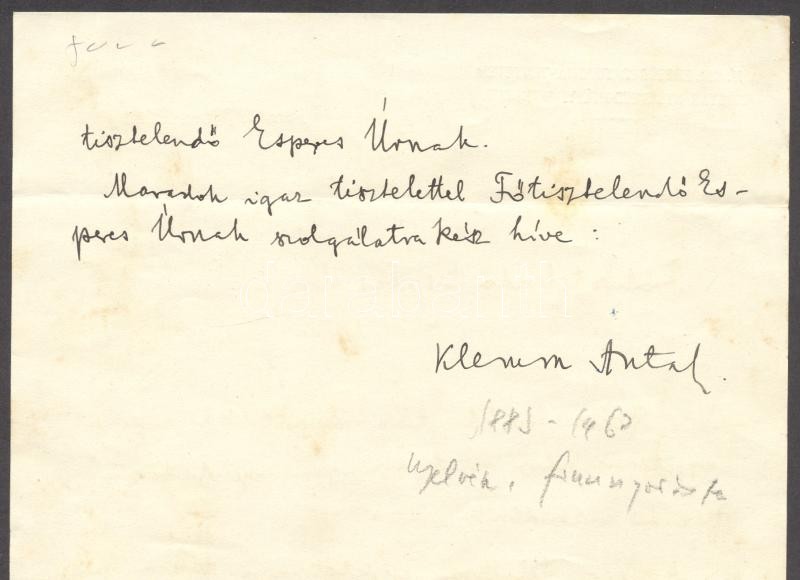 tisztelendő Esperes Úrnak.
Maradok igaz tisztelettel Főtisztelendő Es-
peres Úrnak szolgálatra kész híve :
Klemm Antal.
1883 - 1963
nyelvész, finnugorista
darabanth